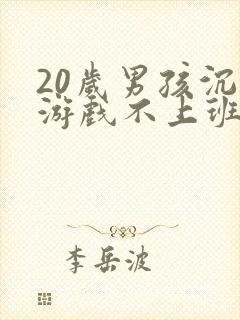 20歲男孩沉
游戲不上班
李岳波